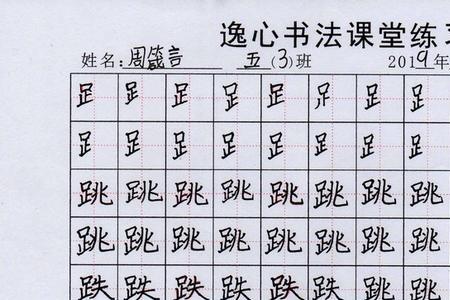 逸心书法课堂练习
姓名:周箴言 五(3)班 2019年
⻊ ⻊ ⻊ ⻊ ⻊ ⻊ ⻊ ⻊
⻊ ⻊ ⻊ ⻊ ⻊ ⻊ ⻊ ⻊
跳 跳 跳 跳 跳 跳 跳 跳
跳 跳 跳 跳 跳 跳 跳 跳
跌 跌 跌 跌 跌 跌 跳 跳